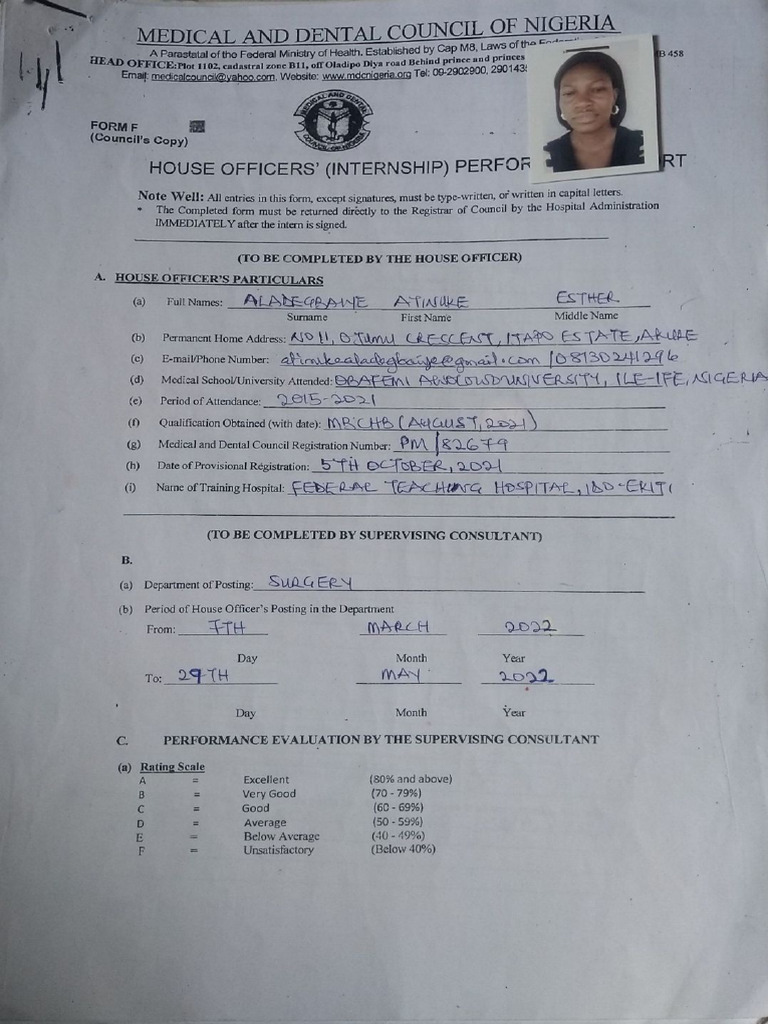 MEDICAL AND DENTAL COUNCIL OF NIGERIA
A Parastatal of the Federal Ministry of Health. Established by Cap M8, Laws of the Federation
HEAD OFFICE:Plot 1102, cadastral zone B11, off Oladipo Diya road Behind prince and princes B 458
Email: medicalcouncil@yahoo.com, Website: www.mdcnigeria.org Tel: 09-2902900, 290143
MEDICAL AND DENTAL COUNCIL OF NIGERIA
FORM F
(Council's Copy)
HOUSE OFFICERS' (INTERNSHIP) PERFOR RT
Note Well: All entries in this form, except signatures, must be type-written, or written in capital letters.
* The Completed form must be returned directly to the Registrar of Council by the Hospital Administration
IMMEDIATELY after the intern is signed.
(TO BE COMPLETED BY THE HOUSE OFFICER)
A. HOUSE OFFICER'S PARTICULARS
(a) Full Names: ALADEGBAIYE ATINUKE ESTHER
Surname First Name Middle Name
(b) Permanent Home Address: NO 11, OTUMU CRESCENT, ITAPO ESTATE, AKURE
(c) E-mail/Phone Number: atinukealadegbaiye@gmail.com / 08130241296
(d) Medical School/University Attended: OBAFEMI AWOLOWO UNIVERSITY, ILE-IFE, NIGERIA
(e) Period of Attendance: 2015-2021
(f) Qualification Obtained (with date): MBCHB (AUGUST, 2021)
(g) Medical and Dental Council Registration Number: PM/82679
(h) Date of Provisional Registration: 5TH OCTOBER, 2021
(i) Name of Training Hospital: FEDERAL TEACHING HOSPITAL, IDO-EKITI
(TO BE COMPLETED BY SUPERVISING CONSULTANT)
B.
(a) Department of Posting: SURGERY
(b) Period of House Officer's Posting in the Department
From: 7TH MARCH 2022
Day Month Year
To: 29TH MAY 2022
Day Month Year
C. PERFORMANCE EVALUATION BY THE SUPERVISING CONSULTANT
(a) Rating Scale
A = Excellent (80% and above)
B = Very Good (70 - 79%)
C = Good (60 - 69%)
D = Average (50 - 59%)
E = Below Average (40 - 49%)
F = Unsatisfactory (Below 40%)